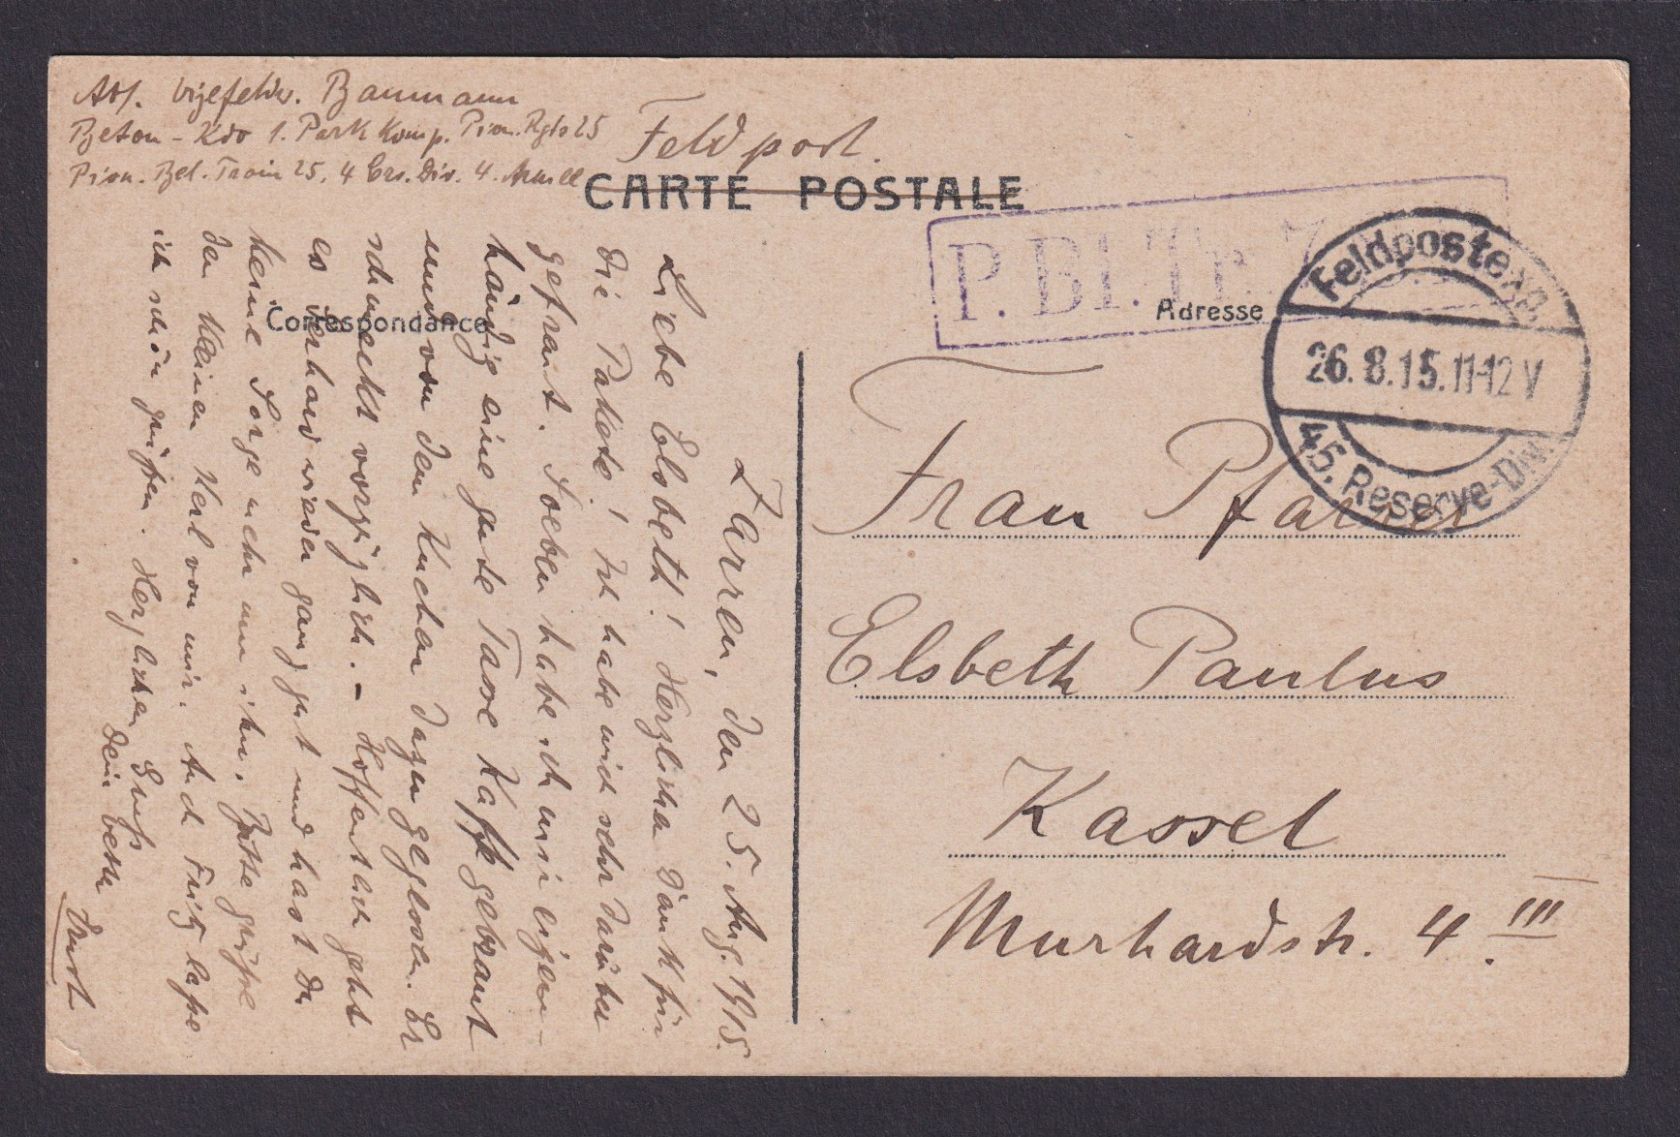 Abs. Vizefeldw. Baumann
Beton-Kdo 1. Park Komp. Pion. Rgt. 25
Pion. Bel. Train 25. 4 Ers. Div. 4. Armee
Feldpost.
CARTE POSTALE
P. Bl. Tr.
Feldpostexp.
26.8.15.11-12 V
45. Reserve-Div.
Correspondance
Adresse
Zarren, den 25. Aug. 1915.
Liebe Elsbeth! Herzlichen Dank für
die Pakete! Ich habe mich sehr darüber
gefreut. Soeben habe ich mir eigen-
händig eine gute Tasse Kaffe gebraut
und von dem Kuchen dazu gegessen. Er
schmeckt vorzüglich. – Hoffentlich geht
es Gerhard wieder ganz gut und hast du
keine Sorge mehr um ihn. Bitte grüße
den kleinen Kerl von mir. Auch Fritz lasse
ich schön grüßen. Herzlichen Gruß
Dein
Ernst
Frau Pfarrer
Elsbeth Paulus
Kassel
Murhardstr. 4. III